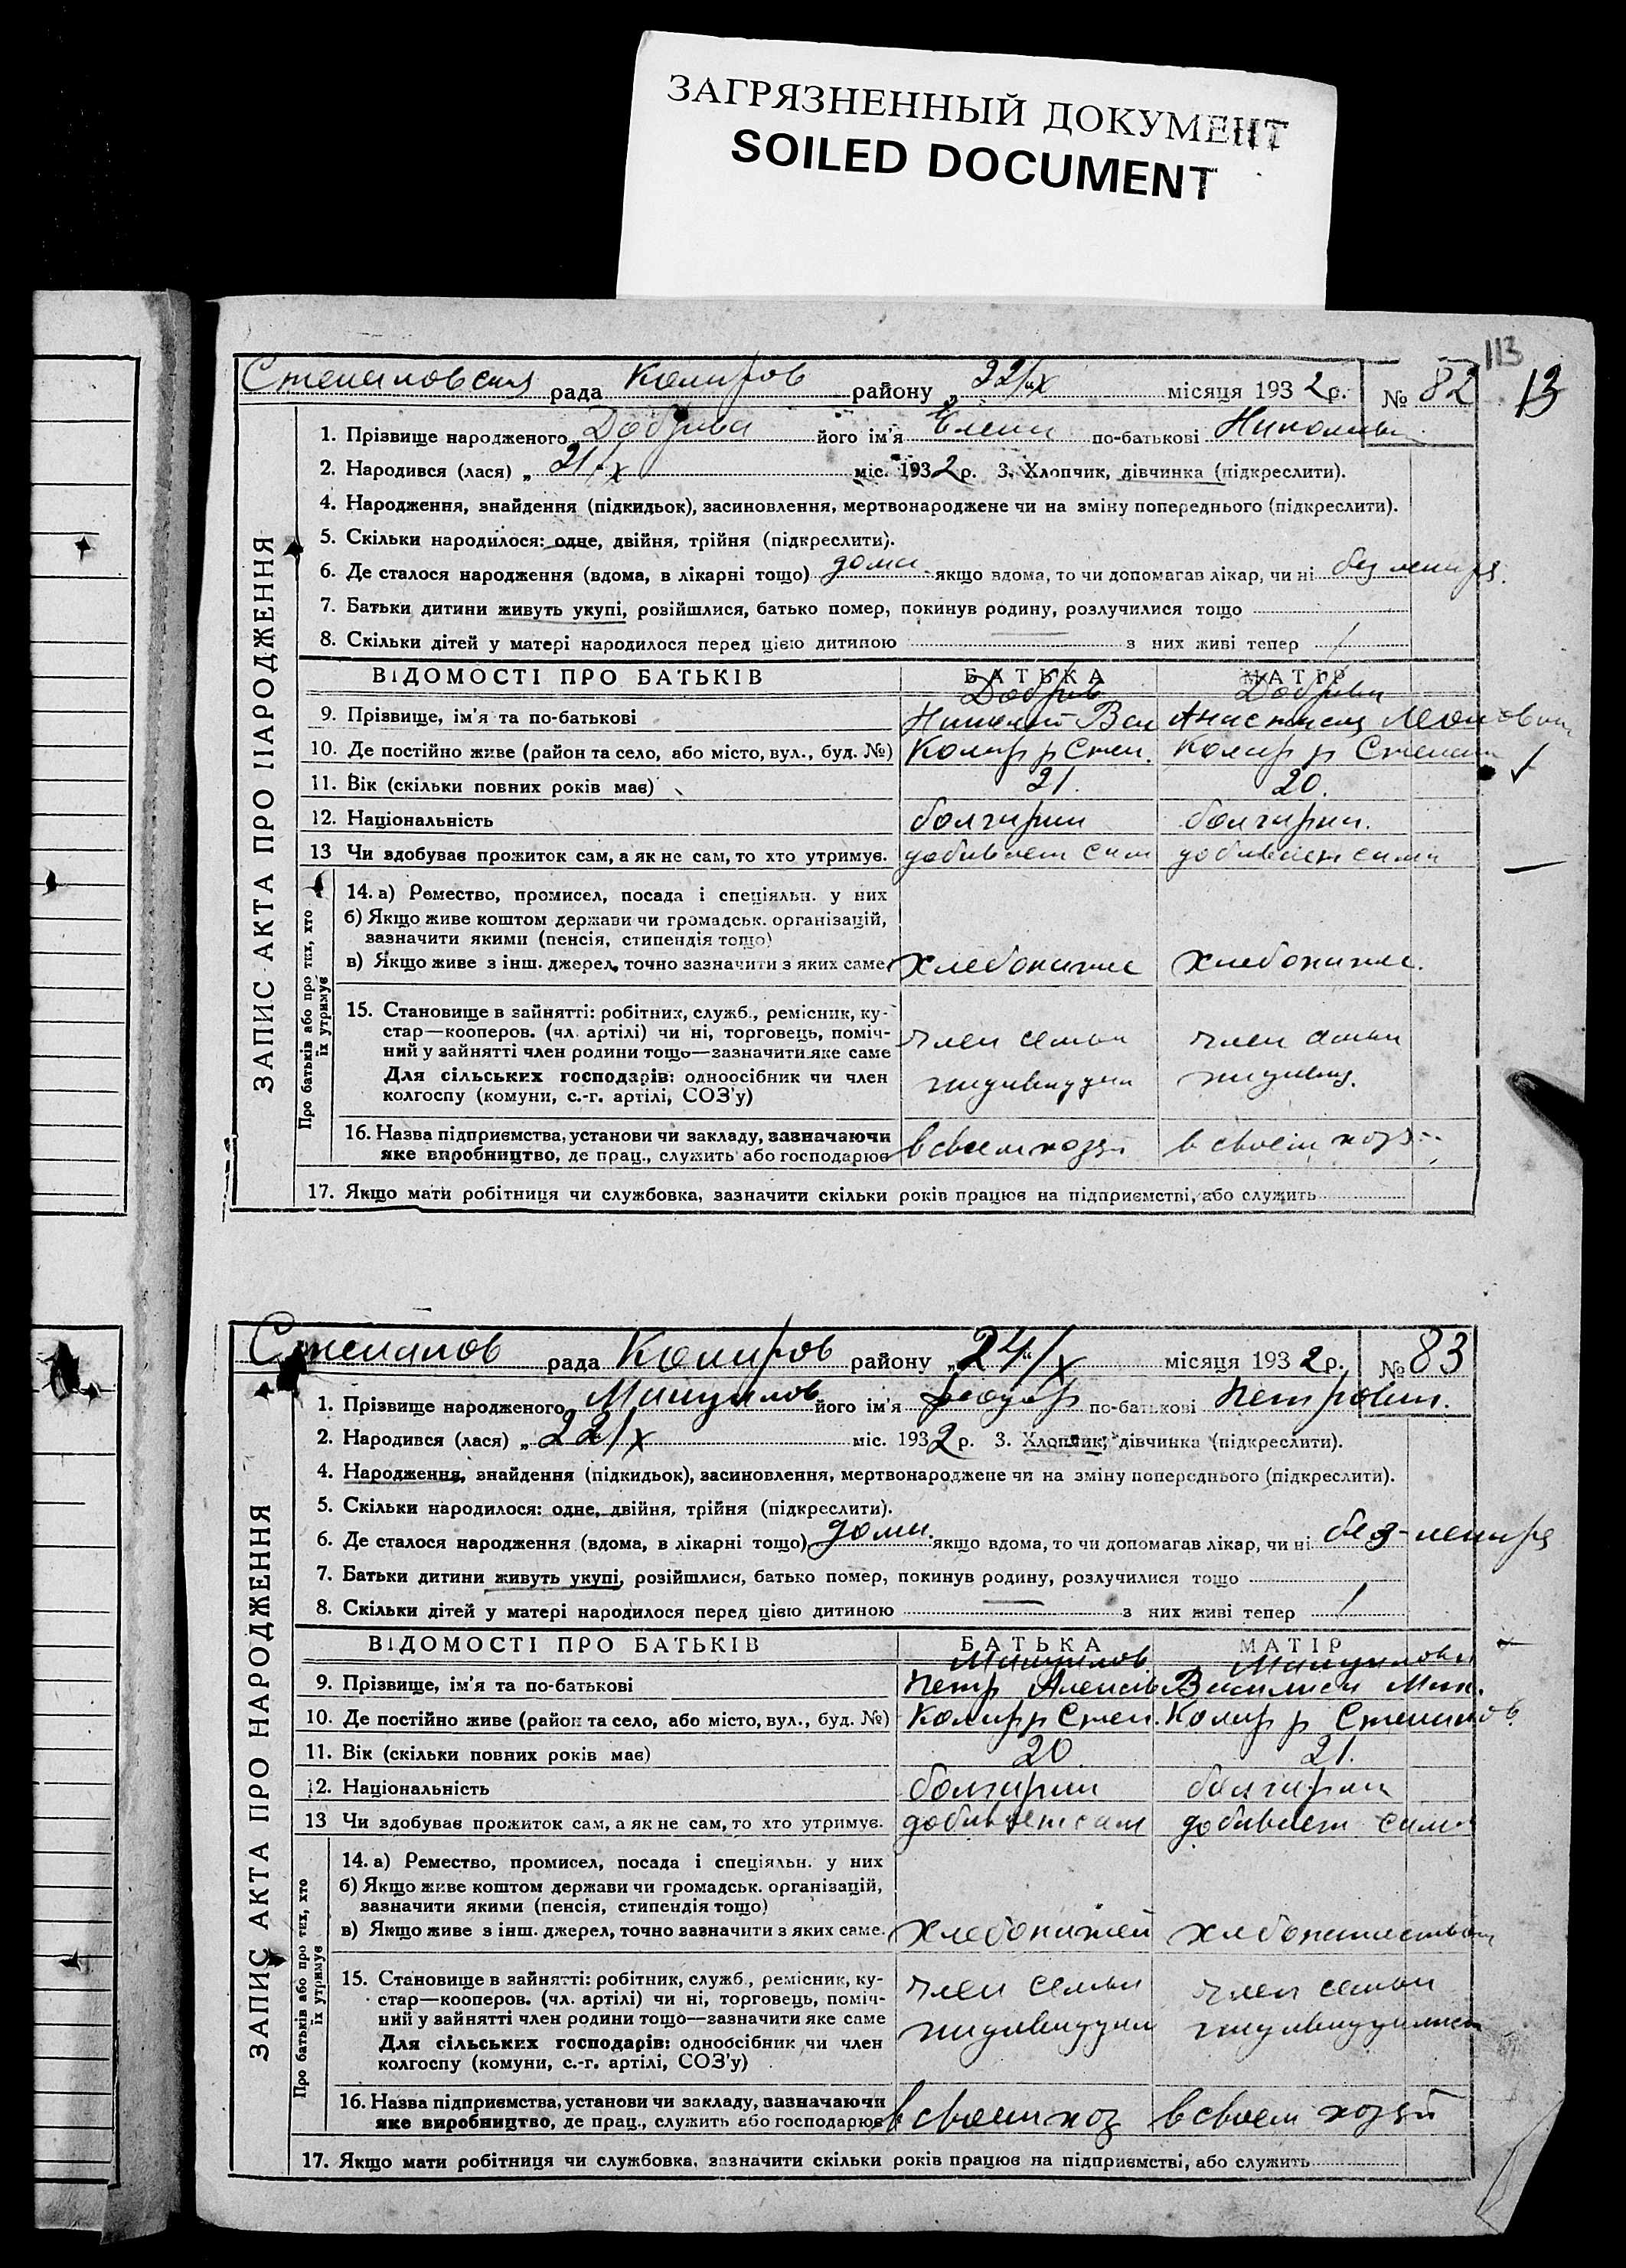 ЗАГРЯЗНЕННЫЙ ДОКУМЕНТ
SOILED DOCUMENT
113
13
Степановская рада Комиров району „22/X місяця 1932 р. № 82
ЗАПИС АКТА ПРО НАРОДЖЕННЯ
1. Прізвище народженого Добрива його ім'я Елена по-батькові
2. Народився (лася) „ 21/X міс. 1932 р. 3. Хлопчик, дівчинка (підкреслити).
4. Народження, знайдення (підкидьок), засиновлення, мертвонароджене чи на зміну попереднього (підкреслити).
5. Скільки народилося: одне, двійня, трійня (підкреслити).
6. Де сталося народження (вдома, в лікарні тощо) дома якщо вдома, то чи допомагав лікар, чи ні без лекаря.
7. Батьки дитини живуть укупі, розійшлися, батько помер, покинув родину, розлучилися тощо
8. Скільки дітей у матері народилося перед цією дитиною — з них живі тепер /
ВІДОМОСТІ ПРО БАТЬКІВ БАТЬКА МАТІР
9. Прізвище, ім'я та по-батькові
10. Де постійно живе (район та село, або місто, вул., буд. №) Комир р Степ. Комир р
11. Вік (скільки повних років має) 21. 20.
12. Національність болгарин болгарин.
13 Чи здобував прожиток сам, а як не сам, то хто утримує. добивает сам добивает сама
Про батьків або про тих, хто
їх утримує
14. а) Ремество, промисел, посада і спеціяльн. у них
б) Якщо живе коштом держави чи громадськ. організацій,
зазначити якими (пенсія, стипендія тощо)
в) Якщо живе з інш. джерел, точно зазначити з яких саме
15. Становище в зайнятті: робітник, служб., ремісник, ку-
стар—кооперов. (чл. артілі) чи ні, торговець, поміч-
ний у зайнятті член родини тощо—зазначити яке саме член семьи член семьи
Для сільських господарів: одноосібник чи член
колгоспу (комуни, с.-г. артілі, СОЗ'у)
16. Назва підприємства, установи чи закладу, зазначаючи
яке виробництво, де прац., служить або господарює в своем хозя в своем хозя
17. Якщо мати робітниця чи службовка, зазначити скільки років працює на підприємстві, або служить
Степанов рада Комиров району „24/X місяця 1932 р. № 83
ЗАПИС АКТА ПРО НАРОДЖЕННЯ
1. Прізвище народженого його ім'я Федор по-батькові Петрович.
2. Народився (лася) „ 22/X міс. 1932 р. 3. Хлопчик, дівчинка (підкреслити).
4. Народження, знайдення (підкидьок), засиновлення, мертвонароджене чи на зміну попереднього (підкреслити).
5. Скільки народилося: одне, двійня, трійня (підкреслити).
6. Де сталося народження (вдома, в лікарні тощо) дома. якщо вдома, то чи допомагав лікар, чи ні без-лекаря
7. Батьки дитини живуть укупі, розійшлися, батько помер, покинув родину, розлучилися тощо
8. Скільки дітей у матері народилося перед цією дитиною — з них живі тепер /
ВІДОМОСТІ ПРО БАТЬКІВ БАТЬКА МАТІР
9. Прізвище, ім'я та по-батькові Петр
10. Де постійно живе (район та село, або місто, вул., буд. №) Комир р Степ. Комир р Степанов
11. Вік (скільки повних років має) 20 21.
12. Національність болгарин болгарин
13 Чи здобував прожиток сам, а як не сам, то хто утримує. добивает сам добивает сама
Про батьків або про тих, хто
їх утримує
14. а) Ремество, промисел, посада і спеціяльн. у них
б) Якщо живе коштом держави чи громадськ. організацій,
зазначити якими (пенсія, стипендія тощо)
в) Якщо живе з інш. джерел, точно зазначити з яких саме.
15. Становище в зайнятті: робітник, служб., ремісник, ку-
стар—кооперов. (чл. артілі) чи ні, торговець, поміч-
ний у зайнятті член родини тощо—зазначити яке саме член семьи член семьи
Для сільських господарів: одноосібник чи член
колгоспу (комуни, с.-г. артілі, СОЗ'у)
16. Назва підприємства, установи чи закладу, зазначаючи
яке виробництво, де прац., служить або господарює в своем хоз в своем хозяй
17. Якщо мати робітниця чи службовка, зазначити скільки років працює на підприємстві, або служить